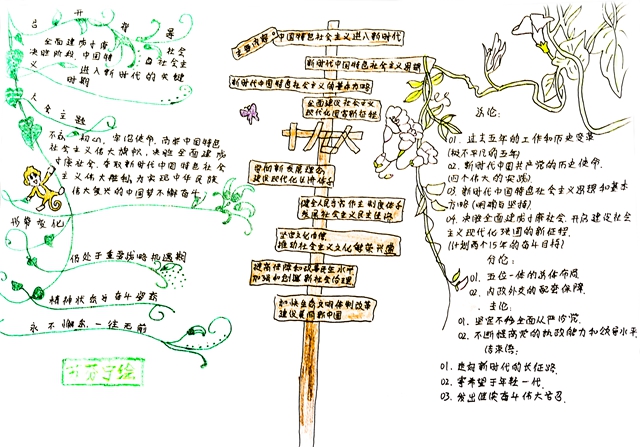 召开背景
全面建成小康社会
决胜阶段、中国特色社会主义
进入新时代的关键
时期
大会主题
不忘初心、牢记使命,高举中国特色
社会主义伟大旗帜,决胜全面建成
小康社会,夺取新时代中国特色社会
主义伟大胜利,为实现中华民族
伟大复兴的中国梦不懈奋斗
仍处于重要战略机遇期
精神状态与奋斗姿态
永不懈怠、一往无前
主要内容:
中国特色社会主义进入新时代
新时代中国特色社会主义思想
新时代中国特色社会主义的基本方略
全面建设社会主义
现代化国家新征程
十九大
贯彻新发展理念,
建设现代化经济体系
健全人民当家作主制度体系
发展社会主义民主政治
坚定文化自信,
推动社会主义文化繁荣兴盛
提高保障和改善民生水平
加强和创新社会治理
加快生态文明体制改革
建设美丽中国
总论:
01. 过去五年的工作和历史变革
(极不平凡的五年)
02. 新时代中国共产党的历史使命.
(四个伟大的实施)
03. 新时代中国特色社会主义思想和基本
方略(明确与坚持)
04. 决胜全面建成小康社会,开启建设社会
主义现代化强国的新征程.
(计划两个15年的奋斗目标)
分论:
01. 五位一体的具体布局
02. 内政外交的配套保障.
主论:
01. 坚定不移全面从严治党.
02. 不断提高党的执政能力和领导水平
结束语:
01. 走向新时代的长征路.
02. 寄希望于年轻一代.
03. 发出继续奋斗伟大号召.